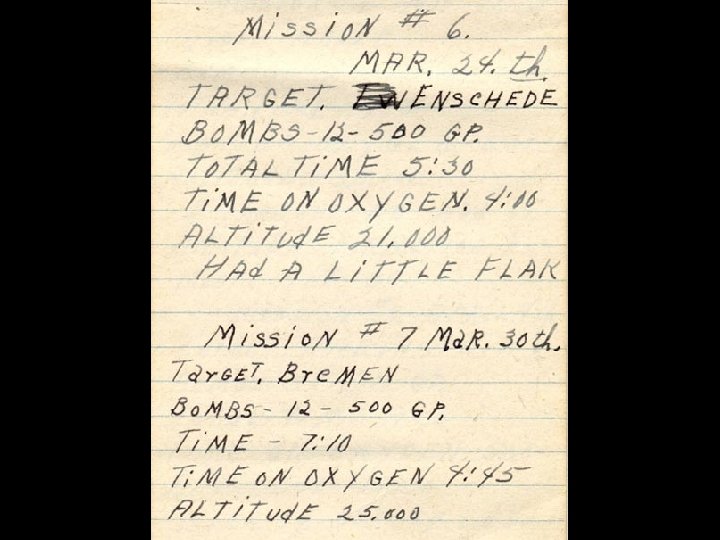 MISSION # 6.
MAR. 24. th.
TARGET. ENSCHEDE
BOMBS-12-500 GP.
TOTAL TIME 5:30
TIME ON OXYGEN. 4:00
ALTITUdE 21.000
HAd A LITTLE FLAK
MISSION # 7 MaR. 30th.
TarGET. BreMEN
BOMBS- 12 - 500 GP.
TIME - 7:10
TIME ON OXYGEN 4:45
ALTITUdE 25.000